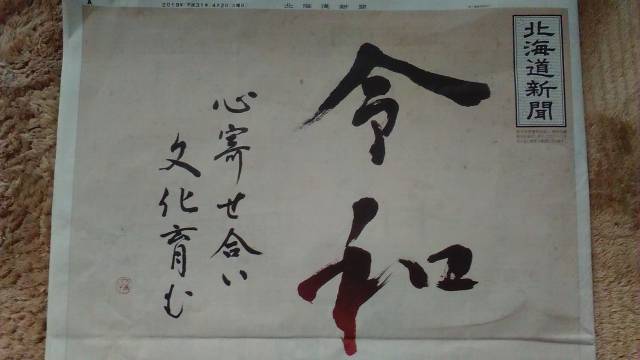 2019年 平成31年 4月2日 火曜日
北海道新聞
北海道新聞
令和
心寄せ合い
文化育む